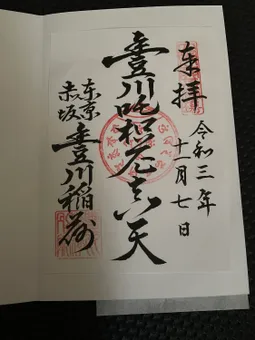 奉拝
令和三年
十一月七日
豊川吒枳尼真天
東京
赤坂
豊川稲荷